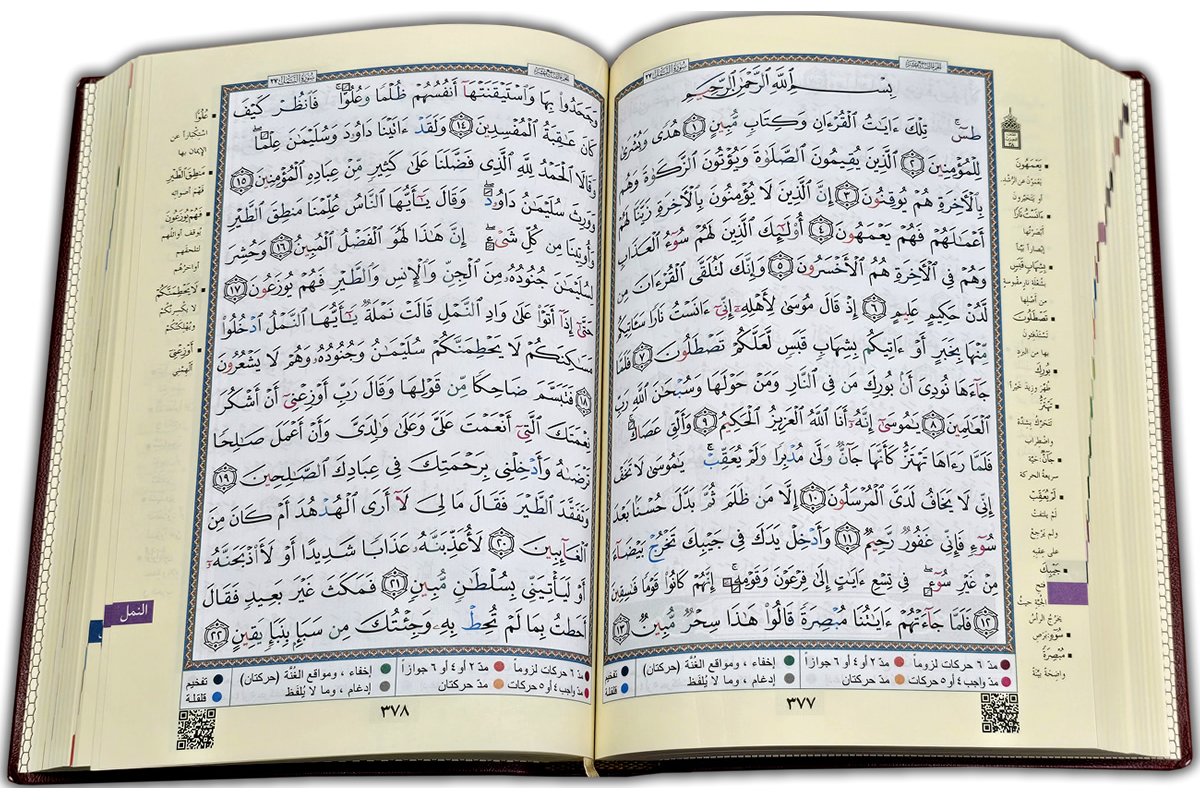 الجزء التاسع عشر
سورة النمل ٢٧
بِسْمِ ٱللَّهِ ٱلرَّحْمَٰنِ ٱلرَّحِيمِ
طسٓۚ تِلْكَ ءَايَٰتُ ٱلْقُرْءَانِ وَكِتَابٖ مُّبِينٍ ١ هُدٗى وَبُشْرَىٰ
لِلْمُؤْمِنِينَ ٢ ٱلَّذِينَ يُقِيمُونَ ٱلصَّلَوٰةَ وَيُؤْتُونَ ٱلزَّكَوٰةَ وَهُم
بِٱلْأَخِرَةِ هُمْ يُوقِنُونَ ٣ إِنَّ ٱلَّذِينَ لَا يُؤْمِنُونَ بِٱلْأَخِرَةِ زَيَّنَّا لَهُمْ
أَعْمَٰلَهُمْ فَهُمْ يَعْمَهُونَ ٤ أُوْلَٰٓئِكَ ٱلَّذِينَ لَهُمْ سُوٓءُ ٱلْعَذَابِ
وَهُمْ فِي ٱلْأَخِرَةِ هُمُ ٱلْأَخْسَرُونَ ٥ وَإِنَّكَ لَتُلَقَّى ٱلْقُرْءَانَ مِن
لَّدُنْ حَكِيمٍ عَلِيمٍ ٦ إِذْ قَالَ مُوسَىٰ لِأَهْلِهِۦٓ إِنِّيٓ ءَانَسْتُ نَارٗا سَـَٔاتِيكُم
مِّنْهَا بِخَبَرٍ أَوْ ءَاتِيكُم بِشِهَابٖ قَبَسٖ لَّعَلَّكُمْ تَصْطَلُونَ ٧ فَلَمَّا
جَآءَهَا نُودِيَ أَنۢ بُورِكَ مَن فِي ٱلنَّارِ وَمَنْ حَوْلَهَا وَسُبْحَٰنَ ٱللَّهِ رَبِّ
ٱلْعَٰلَمِينَ ٨ يَٰمُوسَىٰٓ إِنَّهُۥٓ أَنَا ٱللَّهُ ٱلْعَزِيزُ ٱلْحَكِيمُ ٩ وَأَلْقِ عَصَاكَۚ
فَلَمَّا رَءَاهَا تَهْتَزُّ كَأَنَّهَا جَآنّٞ وَلَّىٰ مُدْبِرٗا وَلَمْ يُعَقِّبْۚ يَٰمُوسَىٰ لَا تَخَفْ
إِنِّي لَا يَخَافُ لَدَيَّ ٱلْمُرْسَلُونَ ١٠ إِلَّا مَن ظَلَمَ ثُمَّ بَدَّلَ حُسْنَۢا بَعْدَ
سُوٓءٖ فَإِنِّي غَفُورٞ رَّحِيمٞ ١١ وَأَدْخِلْ يَدَكَ فِي جَيْبِكَ تَخْرُجْ بَيْضَآءَ
مِنْ غَيْرِ سُوٓءٖۖ فِي تِسْعِ ءَايَٰتٍ إِلَىٰ فِرْعَوْنَ وَقَوْمِهِۦٓۚ إِنَّهُمْ كَانُواْ قَوْمٗا فَٰسِقِينَ
١٢ فَلَمَّا جَآءَتْهُمْ ءَايَٰتُنَا مُبْصِرَةٗ قَالُواْ هَٰذَا سِحْرٞ مُّبِينٞ ١٣
يَعْمَهُونَ
يَعْمَوْنَ عن الرُّشْدِ
أو يَتَحَيَّرُونَ
ءَانَسْتُ نَارًا
أَبْصَرْتُهَا
إبْصاراً بَيِّناً
بِشِهَابٍ قَبَسٍ
بشُعْلَةِ نارٍ مقبوسةٍ
من أصْلِها
تَصْطَلُونَ
تَسْتَدْفِئُونَ
بها من البَرد
بُورِكَ
طُهِّرَ وزِيدَ خَيْراً
تَهْتَزُّ
تَتَحَرَّكُ بِشِدَّةٍ
واضْطِراب
جَآنٌّ: حَيَّةٌ
سريعةُ الحركة
لَمْ يُعَقِّبْ
لَمْ يلتفتْ
ولم يَرْجِعْ
على عَقِبِه
جَيْبِكَ
فَتْحِ
الجُبَّةِ حيثُ
يَخْرُجُ الرأسُ
سُوٓءٍ: بَرَصٍ
مُبْصِرَةً
واضِحَةً بَيِّنَةً
مدّ ٦ حركات لزوماً
مدّ ٢ أو ٤ أو ٦ جوازاً
إخفاء ، ومواقع الغُنَّة (حركتان)
تفخيم
مدّ واجب ٤ أو ٥ حركات
مدّ حركتان
إدغام ، وما لا يُلفَظ
قلقلة
٣٧٧
الجزء التاسع عشر
سورة النمل ٢٧
وَجَحَدُواْ بِهَا وَٱسْتَيْقَنَتْهَآ أَنفُسُهُمْ ظُلْمٗا وَعُلُوّٗاۚ فَٱنظُرْ كَيْفَ
كَانَ عَٰقِبَةُ ٱلْمُفْسِدِينَ ١٤ وَلَقَدْ ءَاتَيْنَا دَاوُۥدَ وَسُلَيْمَٰنَ عِلْمٗاۖ
وَقَالَا ٱلْحَمْدُ لِلَّهِ ٱلَّذِي فَضَّلَنَا عَلَىٰ كَثِيرٖ مِّنْ عِبَادِهِ ٱلْمُؤْمِنِينَ ١٥
وَوَرِثَ سُلَيْمَٰنُ دَاوُۥدَۖ وَقَالَ يَٰٓأَيُّهَا ٱلنَّاسُ عُلِّمْنَا مَنطِقَ ٱلطَّيْرِ
وَأُوتِينَا مِن كُلِّ شَيْءٍۖ إِنَّ هَٰذَا لَهُوَ ٱلْفَضْلُ ٱلْمُبِينُ ١٦ وَحُشِرَ
لِسُلَيْمَٰنَ جُنُودُهُۥ مِنَ ٱلْجِنِّ وَٱلْإِنسِ وَٱلطَّيْرِ فَهُمْ يُوزَعُونَ ١٧
حَتَّىٰٓ إِذَآ أَتَوْاْ عَلَىٰ وَادِ ٱلنَّمْلِ قَالَتْ نَمْلَةٞ يَٰٓأَيُّهَا ٱلنَّمْلُ ٱدْخُلُواْ
مَسَٰكِنَكُمْ لَا يَحْطِمَنَّكُمْ سُلَيْمَٰنُ وَجُنُودُهُۥ وَهُمْ لَا يَشْعُرُونَ
١٨ فَتَبَسَّمَ ضَاحِكٗا مِّن قَوْلِهَا وَقَالَ رَبِّ أَوْزِعْنِيٓ أَنْ أَشْكُرَ
نِعْمَتَكَ ٱلَّتِيٓ أَنْعَمْتَ عَلَيَّ وَعَلَىٰ وَٰلِدَيَّ وَأَنْ أَعْمَلَ صَٰلِحٗا
تَرْضَىٰهُ وَأَدْخِلْنِي بِرَحْمَتِكَ فِي عِبَادِكَ ٱلصَّٰلِحِينَ ١٩
وَتَفَقَّدَ ٱلطَّيْرَ فَقَالَ مَا لِيَ لَآ أَرَى ٱلْهُدْهُدَ أَمْ كَانَ مِنَ
ٱلْغَآئِبِينَ ٢٠ لَأُعَذِّبَنَّهُۥ عَذَابٗا شَدِيدًا أَوْ لَأَاْذْبَحَنَّهُۥٓ
أَوْ لَيَأْتِيَنِّي بِسُلْطَٰنٖ مُّبِينٖ ٢١ فَمَكَثَ غَيْرَ بَعِيدٖ فَقَالَ
أَحَطتُ بِمَا لَمْ تُحِطْ بِهِۦ وَجِئْتُكَ مِن سَبَإِۭ بِنَبَإٖ يَقِينٍ ٢٢
عُلُوًّا
اسْتِكْبَاراً عن
الإيمان بها
مَنطِقَ ٱلطَّيْرِ
فَهْمَ أصواتِه
فَهُمْ يُوزَعُونَ
يُوقَفُ أوائلُهم
لتلحقَهم
أواخرُهم
لَا يَحْطِمَنَّكُمْ
لا يكسرَنَّكم
ويُهلكنَّكم
أَوْزِعْنِيٓ
ألْهِمْني
النمل
مدّ ٦ حركات لزوماً
مدّ ٢ أو ٤ أو ٦ جوازاً
إخفاء ، ومواقع الغُنَّة (حركتان)
تفخيم
مدّ واجب ٤ أو ٥ حركات
مدّ حركتان
إدغام ، وما لا يُلفَظ
قلقلة
٣٧٨